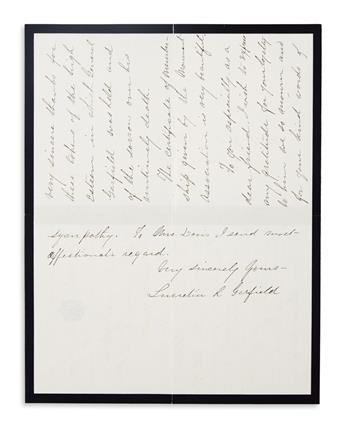 very sincere thanks for
these tokens of the high
esteem in which General
Garfield was held and
of the sorrow over his
untimely death.
The certificate of member-
ship given by the
Association is very beautiful.
To you especially as a
dear friend, I wish to express
my gratitude for your loyalty
to him as so sincere and
for your kind words of
sympathy. To Mrs Davis I send most
affectionate regard.
Very sincerely Yours—
Lucretia R Garfield